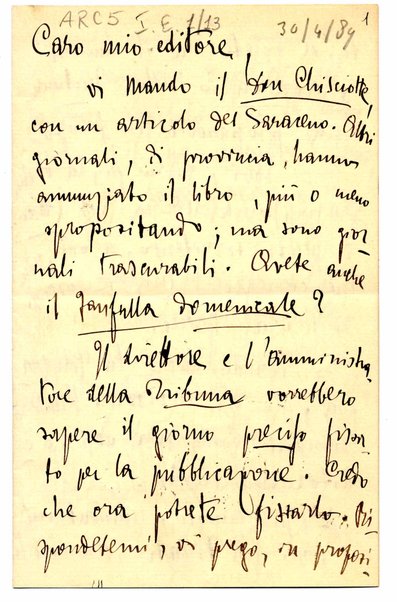 ARC5 I.E 1/13
30/4/89
1
Caro mio editore,
vi mando il Don Chisciotte,
con un articolo del Saraceno. Altri
giornali, di provincia, hanno
annunziato il libro, più o meno
spropositando; ma sono gior-
nali trascurabili. Avete anche
il Fanfulla domenicale?
Il direttore e l'amministra-
tore della Tribuna vorrebbero
sapere il giorno preciso fissa-
to per la pubblicazione. Credo
che ora potrete fissarlo. Ri-
spondetemi, vi prego, in proposi-